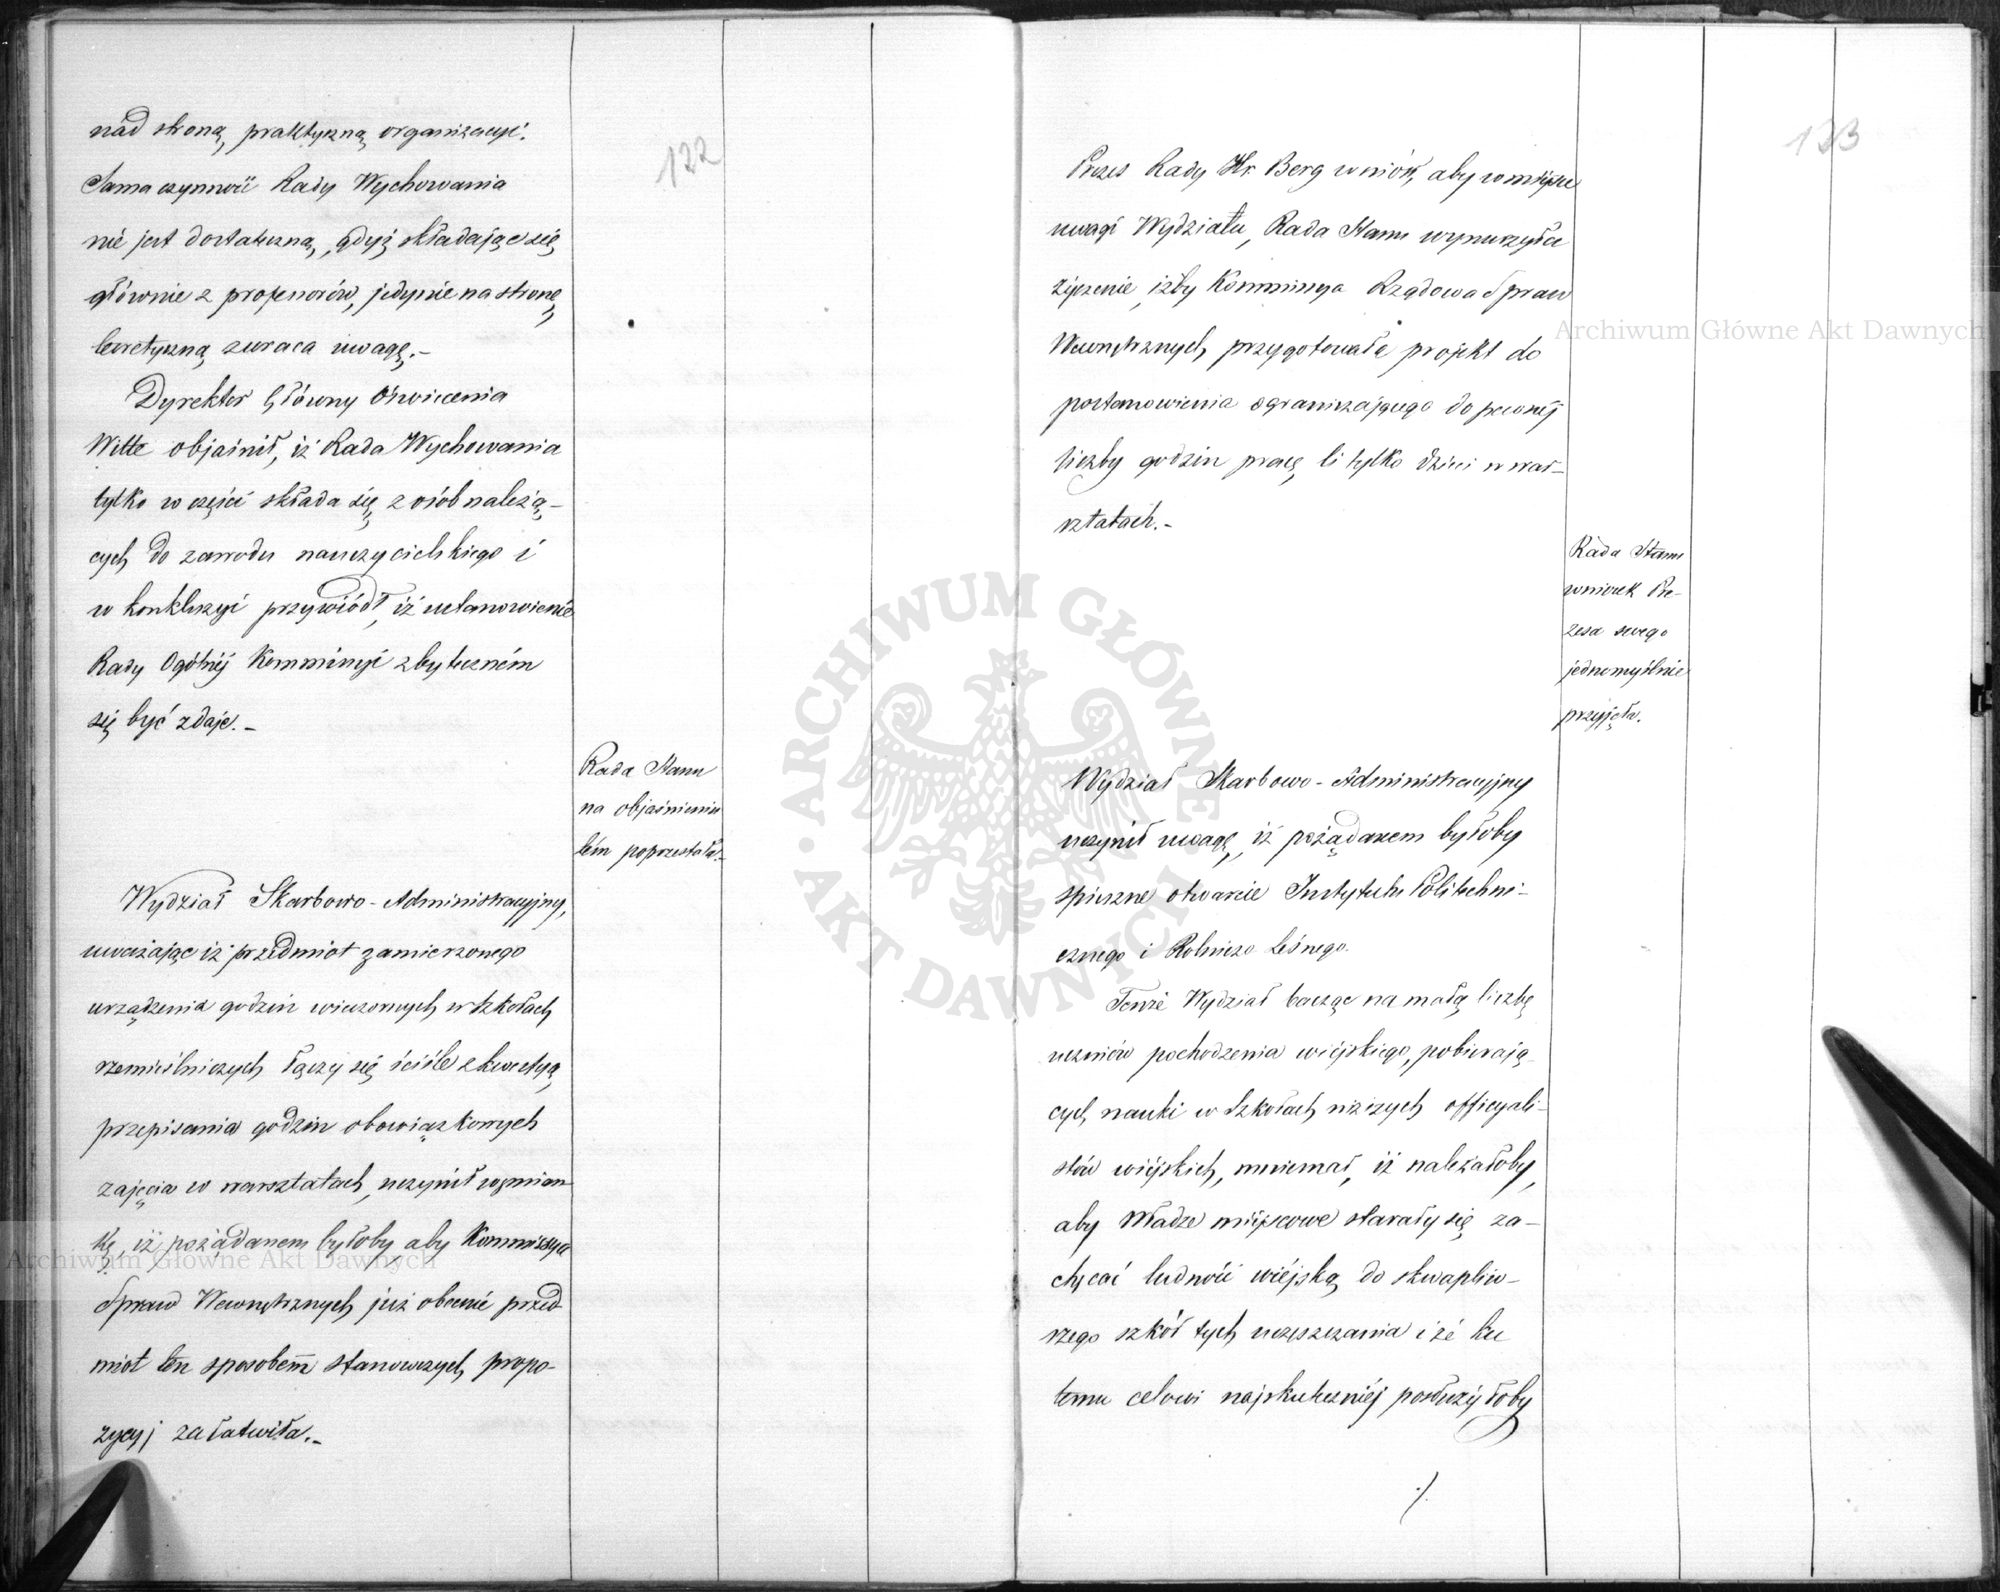 122
nad stroną praktyczną organizacyi.
Sama czynność Rady Wychowania
nie jest dostateczną, gdyż składając się
głównie z profesorów, jedynie na stronę
teoretyczną zwraca uwagę.-
Dyrektor Główny Oświecenia
Witte objaśnił, iż Rada Wychowania
tylko w części składa się z osób należą-
cych do zawodu nauczycielskiego i
w konkluzyi przywiódł, iż ustanowienie
Rady Ogólnéj Kommissyi zbyteczném
się być zdaje.-
Rada Stanu
na objaśnieniu
tém poprzestała.-
Wydział Skarbowo-Administracyjny,
uważając iż przedmiot zamierzonego
urządzenia godzin wieczornych w szkołach
rzemieślniczych łączy się ściśle z kwestyą
przepisania godzin obowiązkowych
zajęcia w warsztatach, uczynił wzmian-
kę, iż pożądanem byłoby aby Kommissya
Spraw Wewnętrznych już obecnie przed-
miot ten sposobem stanowczych propo-
zycyj załatwiła.-
123
Prezes Rady Hr. Berg wniósł, aby w miejsce
uwagi Wydziału, Rada Stanu wynurzyła
życzenie, iżby Kommissya Rządowa Spraw
Wewnętrznych przygotowała projekt do
postanowienia ograniczającego do pewnéj
liczby godzin pracę li tylko dzieci w war-
sztatach.-
Rada Stanu
wniosek Pre-
zesa swego
jednomyślnie
przyjęła.
Wydział Skarbowo-Administracyjny
uczynił uwagę, iż pożądanem byłoby
spieszne otwarcie Instytutu Politechni-
cznego i Rolniczo Leśnego.
Tenże Wydział bacząc na małą liczbę
uczniów pochodzenia wiejskiego, pobierają-
cych nauki w szkołach niższych officyali-
stów wiejskich, mniemał, iż należałoby,
aby władze miejscowe starały się za-
chęcać ludność wiejską do skwapliw-
szego szkół tych uczęszczania i że ku
temu celowi najskuteczniéj posłużyłoby
./.
Archiwum Główne Akt Dawnych
Archiwum Główne Akt Dawnych
· ARCHIWUM GŁÓWNE · AKT DAWNYCH